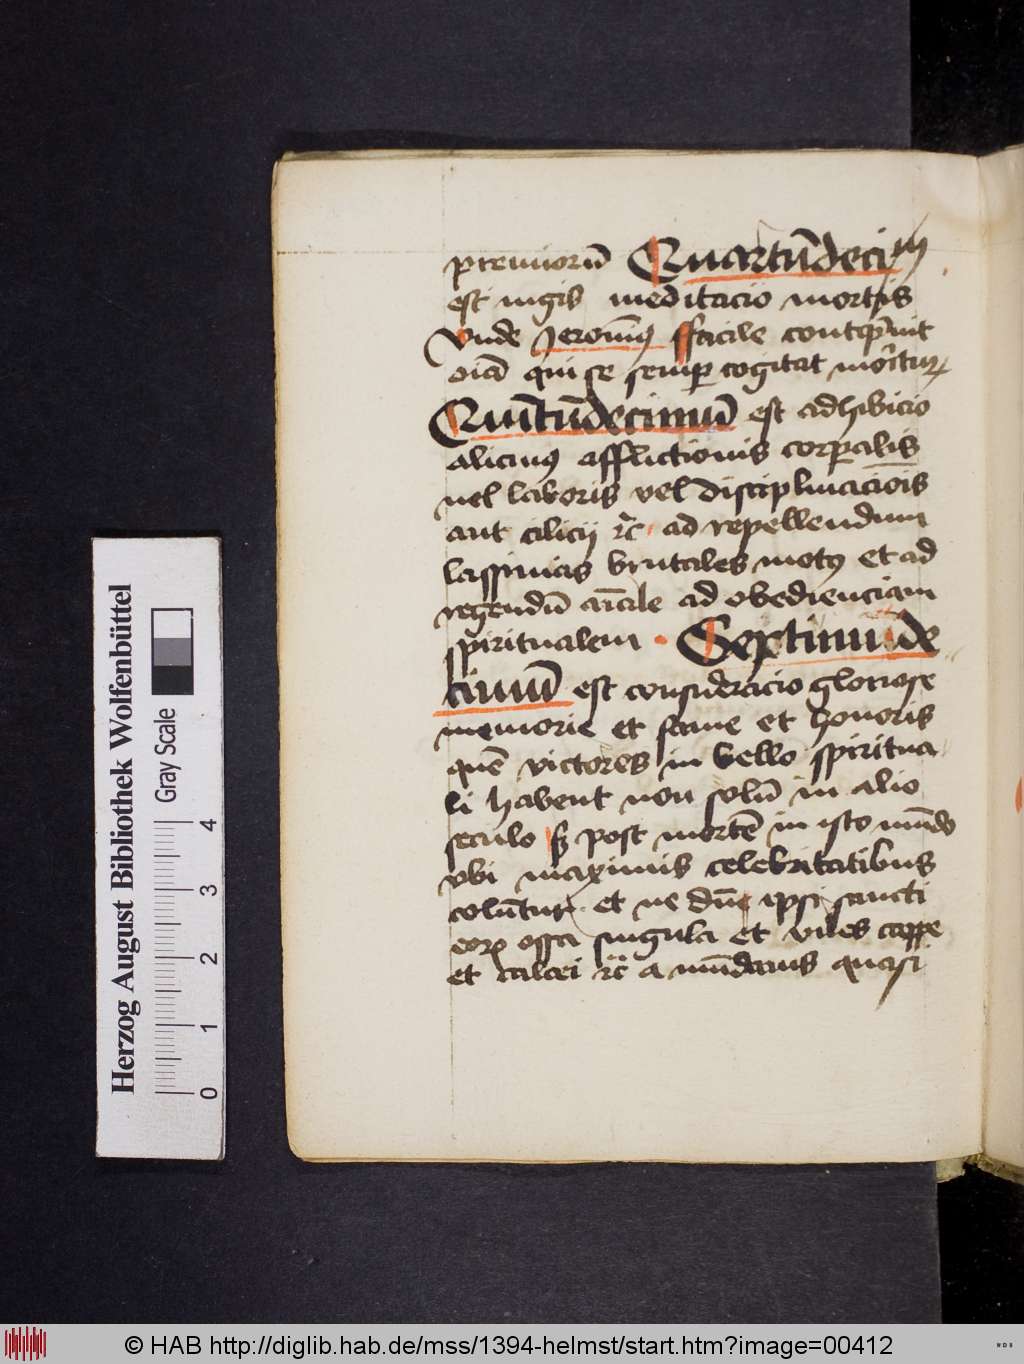 premiorū Quartūdecim
est iugis meditacio mortis
Vnde Jeronimꝰ ffacile contēpnit
oīa qui se semꝑ cogitat moriturꝫ
Quītūdecimū est adhibicio
alicuiꝰ afflictionis corꝑalis
uel laboris vel disciplinacionis
aut cilicij ⁊c̄ ad repellendum
lassiuias brutales motꝰ et ad
regendū ad obedienciam
spiritualem Septimūde
cimū est consideracio gloriose
memorie et fame et honoris
quē victores in bello spiritua
li habent non solū in alio
seculo sꝫ post mortē in isto mūdo
vbi maximis celebritatibus
colūtur et ne dū ipsi sancti
eoꝝ ossa singula et viles cappe
et calcei ⁊c̄ a mūdanis quasi
Herzog August Bibliothek Wolfenbüttel
Gray Scale
0 1 2 3 4
© HAB http://diglib.hab.de/mss/1394-helmst/start.htm?image=00412